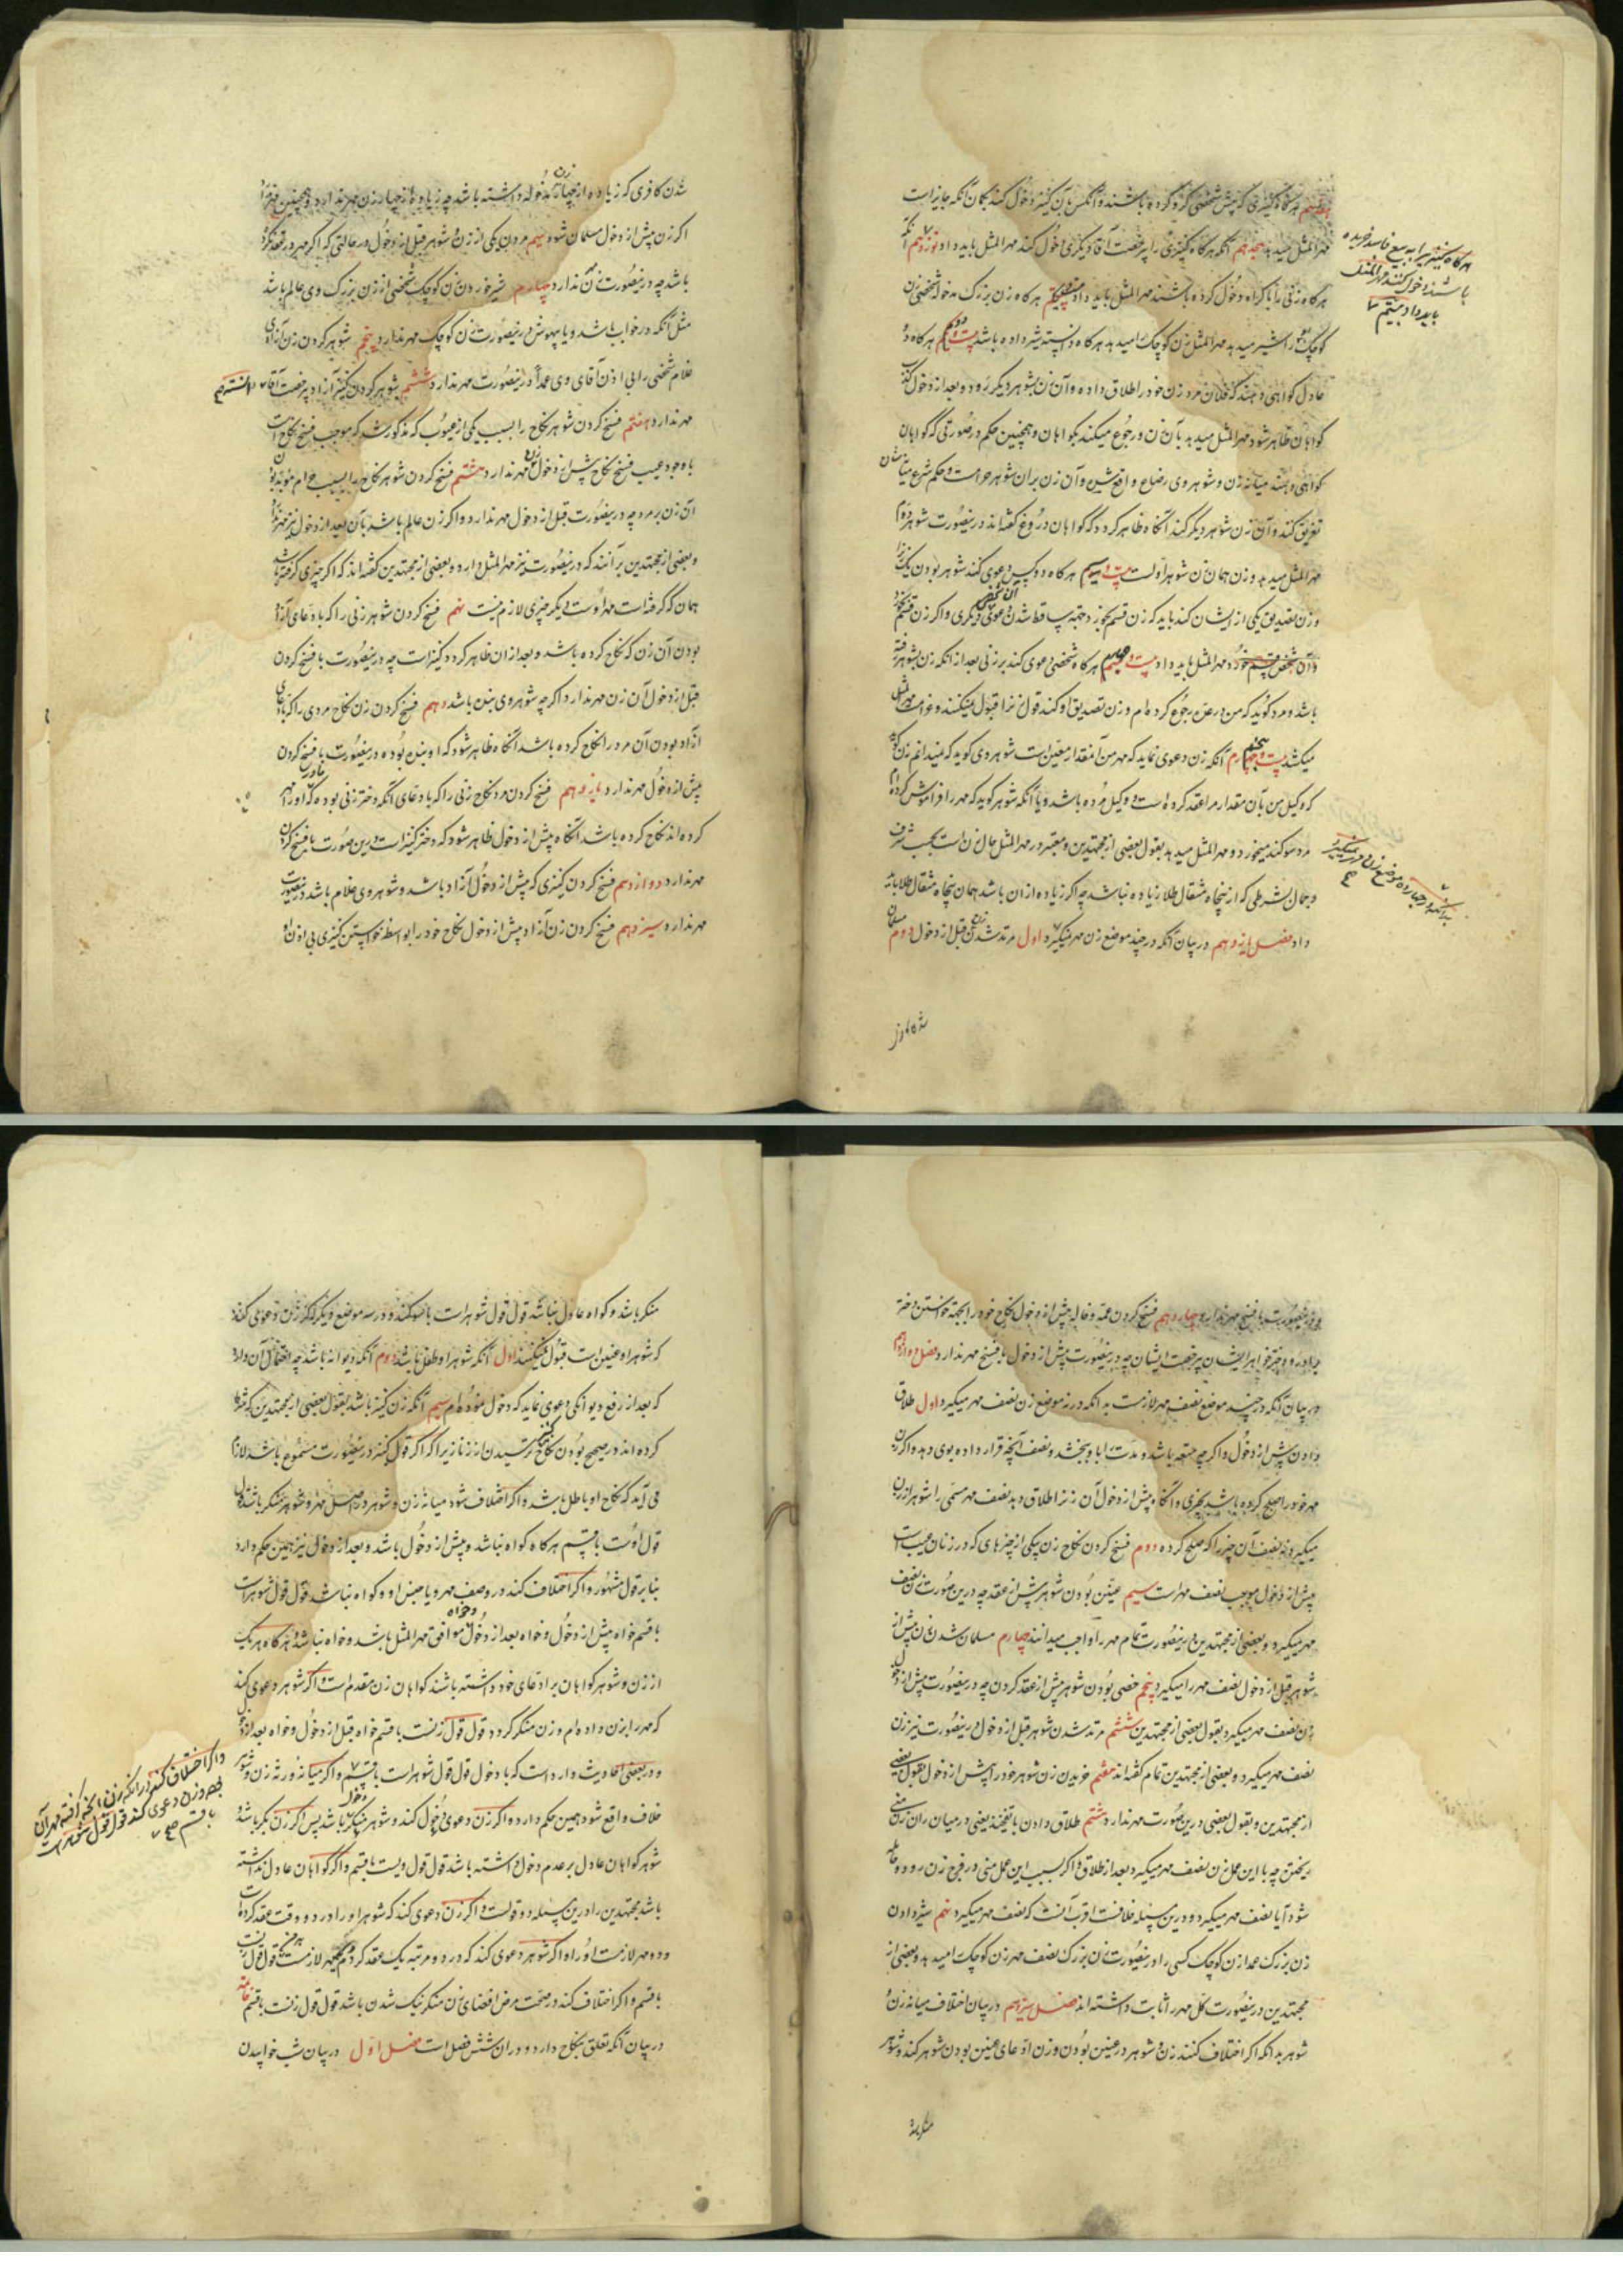 هرگاه کنیزی که پیش شخصی گرو کرده باشند و آنکس بآن کنیز دخول کند بگمان آنکه جایز است
مهرالمثل میدهد هجدهم آنکه هرگاه کنیزی را بی رخصت آقا دیگری دخول کند مهرالمثل باید داد نوزدهم آنکه
هرگاه زنی را باکراه دخول کرده باشند مهرالمثل باید داد هرگاه زن بزرگ مدخوله شخصی زن
کوچک او را شیر میدهد مهرالمثل زن کوچک را میدهد هرگاه دانسته شیر داده باشد بیست و هرگاه دو
عادل گواهی دهند که فلان مرد زن خود را طلاق داده و آن زن بشوهر دیگر رود و بعد از دخول کذب
گواهان ظاهر شود مهرالمثل میدهد بآن زن و رجوع میکند بگواهان و همچنین حکم در صورتی که گواهان
گواهی دهند میانه زن و شوهر وی رضاع واقع شده و آن زن بر آن شوهر حرامست و حکم شرع میانشان
تفریق کند و آن زن شوهر دیگر کند آنگاه ظاهر گردد که گواهان دروغ گفته اند درینصورت شوهر دوم
مهرالمثل میدهد و زن همان زن شوهر اولست بیست و سیم هرگاه دو کس دعوی کند شوهر بودن یک زنرا
و زن تصدیق یکی از ایشان کند باید که زن قسم بخورد جهة ساقط شدن دعوی دیگری و اگر زن قسم نخورد
و آن شخص قسم خورد مهرالمثل باید داد بیست و چهارم هرگاه شخصی دعوی کند بر زنی بعد از آنکه زن بشوهر رفته
باشد و مرد گوید که من در عده رجوع کرده ام و زن تصدیق او کند قول زنرا قبول نمیکنند و غرامت مهرالمثل
میکشد بیست و پنجم آنکه زن دعوی نماید که مهر من آنمقدار معین است شوهر وی گوید که نمیدانم زن گوید
که وکیل من بآن مقدار مرا عقد کرده است و وکیل مرده باشد و یا آنکه شوهر گوید که مهر را فراموش کرده ام
مرد سوگند میخورد و مهرالمثل میدهد بقول بعضی از مجتهدین و معتبر در مهرالمثل حال زن است بحسب شرف
و جمال بشرطی که از پنجاه مثقال طلا زیاده نباشد چه اگر زیاده از آن باشد همان پنجاه مثقال طلا باید
داد فصل یازدهم در بیان آنکه در چند موضع زن مهر نمیگیرد اول مرتد شدن زن قبل از دخول دوم مسلمان
هرگاه کنیزیرا به بیع فاسد خریده
باشند و دخول کنند مهرالمثل
باید داد بیستم
بدانکه در چهارده موضع زن مهر نمیگیرد
شدن کافری که زیاده از چهار زن مدخوله داشته باشد چه زیاده از چهار زن مهر ندارد و همچنین
اگر زن پیش از دخول مسلمان شود سیم مردن یکی از زن و شوهر قبل از دخول در حالتی که اگر مهر در عقد نکرده
باشد چه درینصورت زن آن ندارد چهارم شیر خوردن زن کوچک شخصی از زن بزرگ وی عالم باشد
مثل آنکه در خواب باشد و یا بیهوش درینصورت زن کوچک مهر ندارد پنجم شوهر کردن زن آزادی
غلام شخصی را بی اذن آقای وی عمداً درینصورت مهر ندارد ششم شوهر کردن کنیز آزاد بی رخصت آقا
مهر ندارد هفتم فسخ کردن شوهر نکاح را بسبب یکی از عیوب که مذکور شد که موجب فسخ نکاح است
با وجود عیب فسخ نکاح پیش از دخول زن مهر ندارد هشتم فسخ کردن شوهر نکاح را بسبب حرام مؤبد بودن
آن زن بر مرد چه درینصورت قبل از دخول مهر ندارد و اگر زن عالم باشد بآن بعد از دخول نیز مهر ندارد
و بعضی از مجتهدین برآنند که درینصورت نیز مهرالمثل دارد و بعضی از مجتهدین گفته اند که اگر چیزی گرفته باشد
همان که گرفته است مهر اوست دیگر چیزی لازم نیست نهم فسخ کردن شوهر زنی را که بادعای آزاد
بودن آن زن که نکاح کرده باشد و بعد از آن ظاهر گردد که کنیز است چه درینصورت با فسخ کردن
قبل از دخول آن زن مهر ندارد اگر چه شوهر وی بنده باشد دهم فسخ کردن زن نکاح مردی را که بادعای
آزاد بودن آن مرد را نکاح کرده باشد آنگاه ظاهر شود که او بنده بوده درینصورت با فسخ کردن
پیش از دخول مهر ندارد یازدهم فسخ کردن مرد نکاح زنی را که بادعای آنکه دختر زنی بوده که او را مهر
کرده اند نکاح کرده باشد آنگاه پیش از دخول ظاهر شود که دختر کنیز است درین صورت با فسخ کردن
مهر ندارد دوازدهم فسخ کردن کنیزی که پیش از دخول آزاد باشد و شوهر وی غلام باشد درینصورت
مهر ندارد سیزدهم فسخ کردن زن آزاد پیش از دخول نکاح خود را بواسطه خواستن کنیزی بی اذن او
درینصورت با فسخ مهر ندارد چهاردهم فسخ کردن عمه و خاله پیش از دخول نکاح خود را بجهة خواستن دختر
برادر و دختر خواهر ایشان بی رخصت ایشان چه درینصورت پیش از دخول با فسخ مهر ندارد فصل دوازدهم
در بیان آنکه در چند موضع نصف مهر لازمست بدانکه در نه موضع زن نصف مهر میگیرد اول طلاق
دادن پیش از دخول و اگر چه متعه باشد و مدت را باو بخشد و نصف آنچه قرار داده بوی دهد و اگر زن
مهر خود را صلح کرده باشد بچیزی و آنگاه پیش از دخول آن زنرا طلاق دهد نصف مهر مسمی را شوهر از زن
میگیرد نه نصف آن چیز را که صلح کرده دوم فسخ کردن نکاح زن بیکی از چیزهای که در زنان عیب است
پیش از دخول موجب نصف مهر است سیم عنین بودن شوهر پیش از عقد چه درین صورت زن نصف
مهر میگیرد و بعضی از مجتهدین درینصورت تمام مهر را واجب میدانند چهارم مسلمان شدن زن پیش از
شوهر قبل از دخول نصف مهر را میگیرد پنجم خصی بودن شوهر پیش از عقد کردن چه درینصورت پیش از دخول
زن نصف مهر میگیرد بقول بعضی از مجتهدین ششم مرتد شدن شوهر قبل از دخول درینصورت نیز زن
نصف مهر میگیرد و بعضی از مجتهدین تمام گفته اند هفتم خریدن زن شوهر خود را پیش از دخول بقول بعضی
از مجتهدین و بقول بعضی درین صورت مهر ندارد هشتم طلاق دادن با تفخیذ یعنی در میان ران زن منی
ریختن چه با این عمل زن نصف مهر میگیرد بعد از طلاق و اگر بسبب این عمل منی در فرج زن رود و حامله
شود آیا نصف مهر میگیرد و درین مسئله خلافست اقرب آنست که نصف مهر میگیرد نهم شیر دادن
زن بزرگ عمدا زن کوچک کسی را درینصورت زن بزرگ نصف مهر زن کوچک را میدهد و بعضی از
مجتهدین درینصورت کل مهر را ثابت داشته اند فصل سیزدهم در بیان اختلاف میانه زن و
شوهر بدانکه اگر اختلاف کنند زن و شوهر در عنین بودن و زن ادعای عنین بودن شوهر کند و شوهر
منکر باشد و گواه عادل نباشد قول قول شوهر است با سوگند و در سه موضع دیگر اگر زن دعوی کند
که شوهر او عنین است قبول نمیکنند اول آنکه شوهر او طفل باشد دوم آنکه دیوانه باشد چه احتمال آن دارد
که بعد از رفع دیوانگی دعوی نماید که دخول نموده ام سیم آنکه زن کنیز باشد بقول بعضی از مجتهدین که شرط
کرده اند در صحیح بودن نکاح کنیز ترسیدن از زنا زیرا که اگر قول کنیز درینصورت مسموع باشد لازم
می آید که نکاح او باطل باشد و اگر اختلاف شود میانه زن و شوهر در اصل مهر و شوهر منکر باشد قول
قول اوست با قسم هرگاه گواه نباشد و پیش از دخول باشد و بعد از دخول نیز همین حکم دارد
بنابر قول مشهور و اگر اختلاف کنند در وصف مهر و یا جنس او و گواه نباشد قول قول شوهر است
با قسم خواه پیش از دخول و خواه بعد از دخول و خواه موافق مهرالمثل باشد و خواه نباشد و هرگاه هر یک
از زن و شوهر گواهان بر ادعای خود داشته باشند گواهان زن مقدم است و اگر شوهر دعوی کند
که مهر را بزن داده ام و زن منکر گردد قول قول زنست با قسم خواه قبل از دخول و خواه بعد از دخول
و در بعضی احادیث وارد است که با دخول قول قول شوهر است با قسم و اگر میانه ورثه زن و شوهر
خلاف واقع شود همین حکم دارد و اگر زن دعوی دخول کند و شوهر منکر دخول باشد پس اگر زن بکر باشد و
شوهر گواهان عادل بر عدم دخول داشته باشد قول قول ویست با قسم و اگر گواهان عادل نداشته
باشد مجتهدین را درین مسئله دو قولست و اگر زن دعوی کند که شوهر او را در دو وقت عقد کرده است
و دو مهر لازمست او را و اگر شوهر دعوی کند که در دو مرتبه یک عقد کردم یک مهر لازمست قول قول زنست
با قسم و اگر اختلاف کنند در صحت مرض افضای زن منکر نیک شدن باشد قول قول زنست با قسم خاتمه
در بیان آنکه تعلق بنکاح دارد و در آن شش فصل است فصل اول در بیان شب خوابیدن
و اگر اختلاف کنند در آنکه زن آنچه گرفته مهر آن
بضع و زن دعوی کند قول قول شوهر است
با قسم